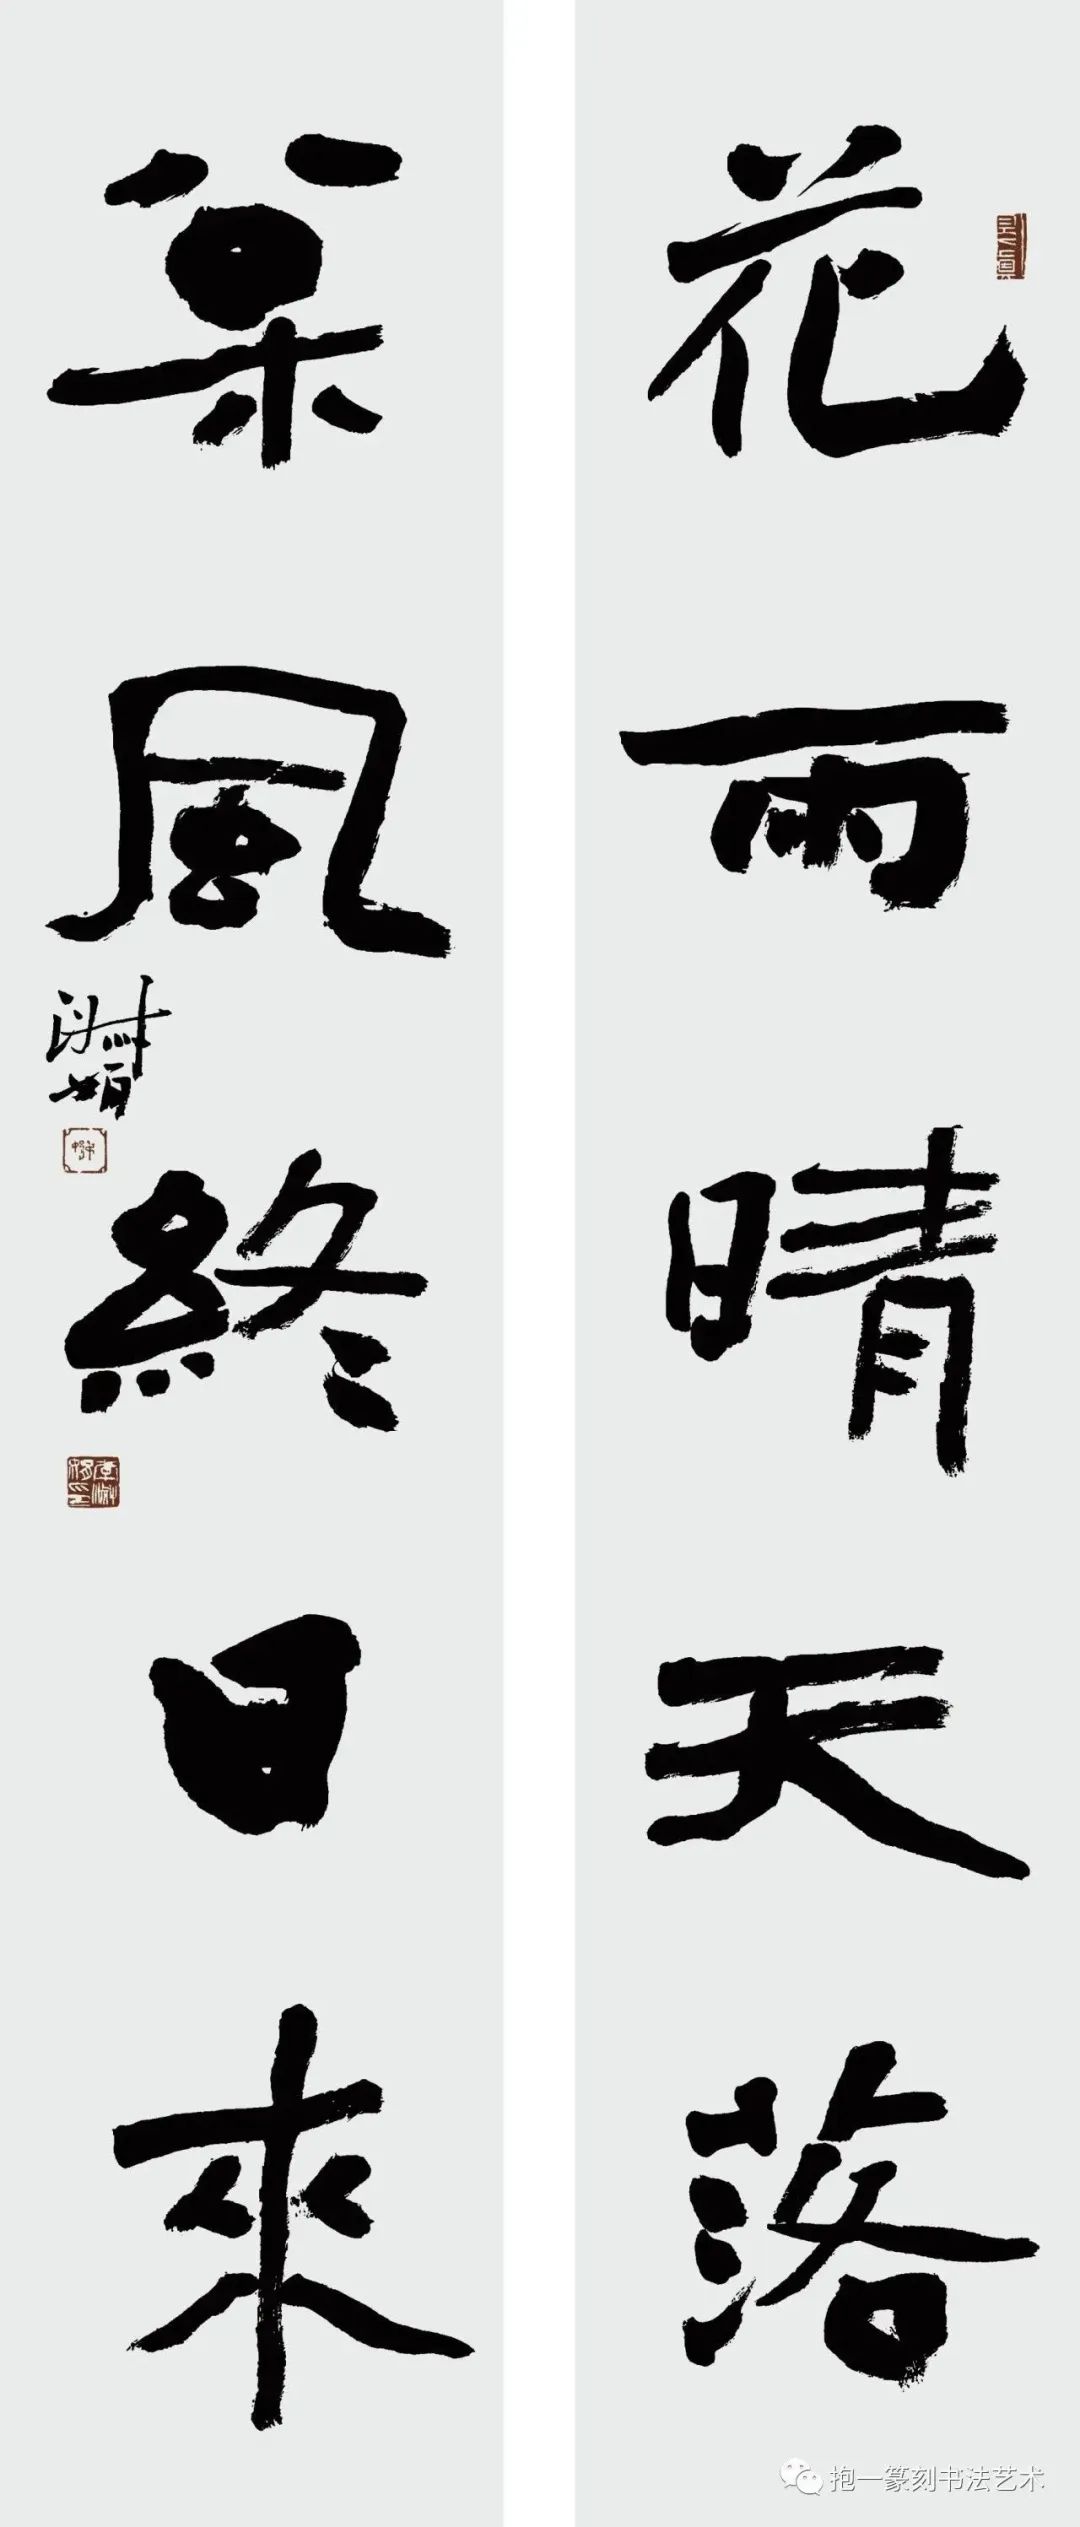 花雨晴天落
葉風終日來
抱一篆刻书法艺术